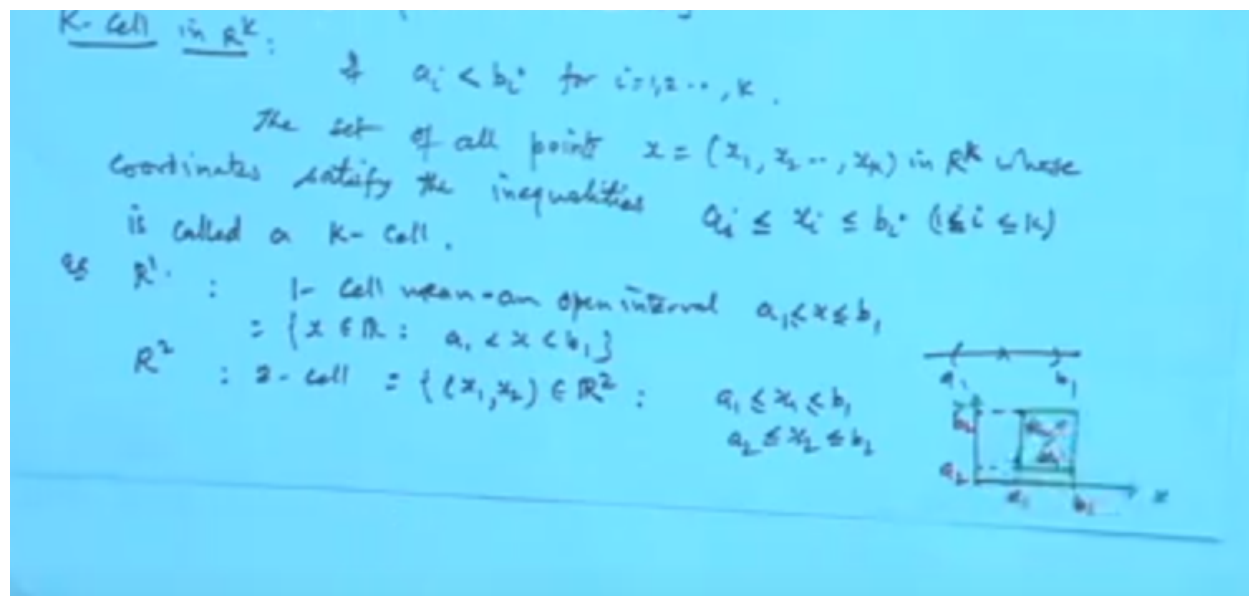 K-Cell in R^k :
If a_i < b_i for i=1,2..,k.
The set of all points x = (x_1, x_2 .., x_k) in R^k whose
coordinates satisfy the inequalities a_i ≤ x_i ≤ b_i (1≤ i ≤ k)
is called a K-Cell.
eg R^1 : 1-Cell mean-an open interval a_1 ≤ x ≤ b_1
= {x ∈ R : a_1 < x < b_1}
R^2 : 2-cell = {(x_1, x_2) ∈ R^2 : a_1 ≤ x_1 ≤ b_1
a_2 ≤ x_2 ≤ b_2
a_1 b_1
b_2
a_2
a_1 b_1 x